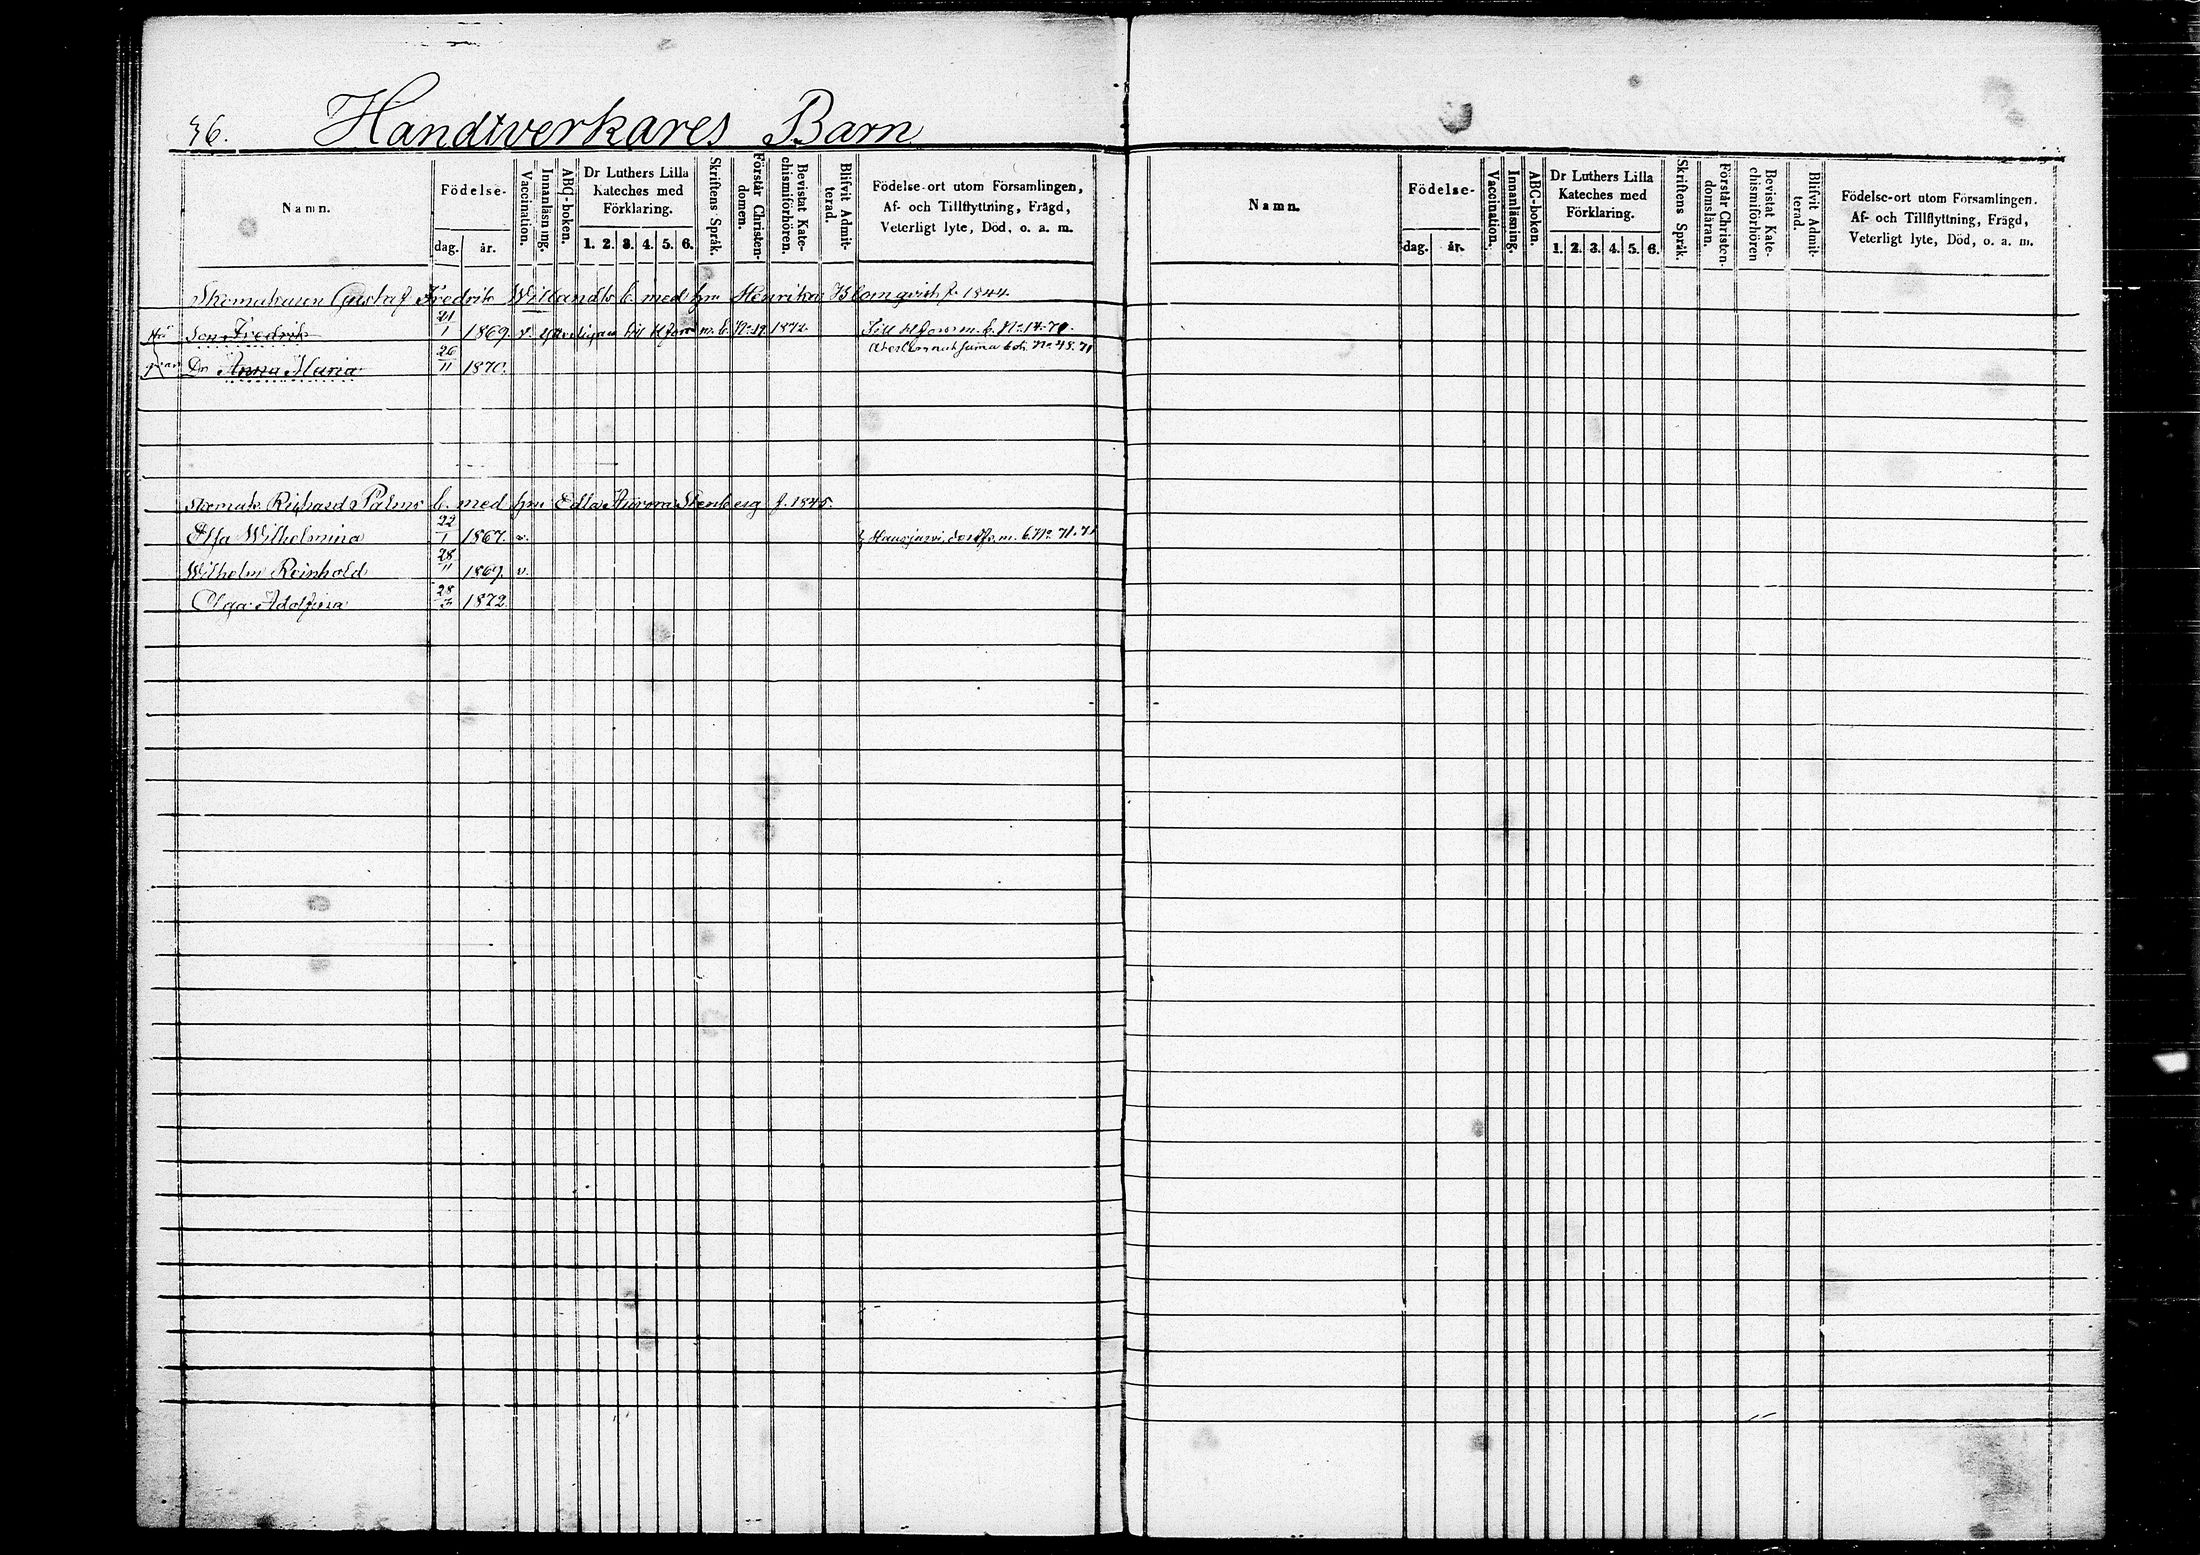 36. Handtverkares Barn
Namn.
Födelse-
dag. år.
Vaccination.
Innanläsning.
ABC-boken.
Dr Luthers Lilla
Kateches med
Förklaring.
1. 2. 3. 4. 5. 6.
Skriftens Språk.
Förstår Christen-
domen.
Bevistat Kate-
chismiförhören.
Blifvit Admit-
terad.
Födelse-ort utom Församlingen,
Af- och Tillflyttning, Frägd,
Veterligt lyte, Död, o. a. m.
Skomakaren Gustaf Fredrik Willandts b. med hu Henrika Blomqvist f. 1844.
Son Fredrik 21/1 1869. v. til Hfors m. b. No 19. 1872. Till Hfors m. b. No 14. 70.
samma No 48. 71
Dr Anna Maria 26/11 1870.
Skomak. Richard Palms b. med hu Edla Aurora Stenberg f. 1845.
Elsa Wilhelmina 22/1 1867. v. Hausjärvi, m. b. No 71. 71
Wilhelm Reinhold 28/11 1869. v.
Olga Adolfina 28/3 1872.
Namn.
Födelse-
dag. år.
Vaccination.
Innanläsning.
ABC-boken.
Dr Luthers Lilla
Kateches med
Förklaring.
1. 2. 3. 4. 5. 6.
Skriftens Språk.
Förstår Christen-
domsläran.
Bevistat Kate-
chismiförhören
Blifvit Admit-
terad.
Födelse-ort utom Församlingen.
Af- och Tillflyttning, Frägd,
Veterligt lyte, Död, o. a. m.